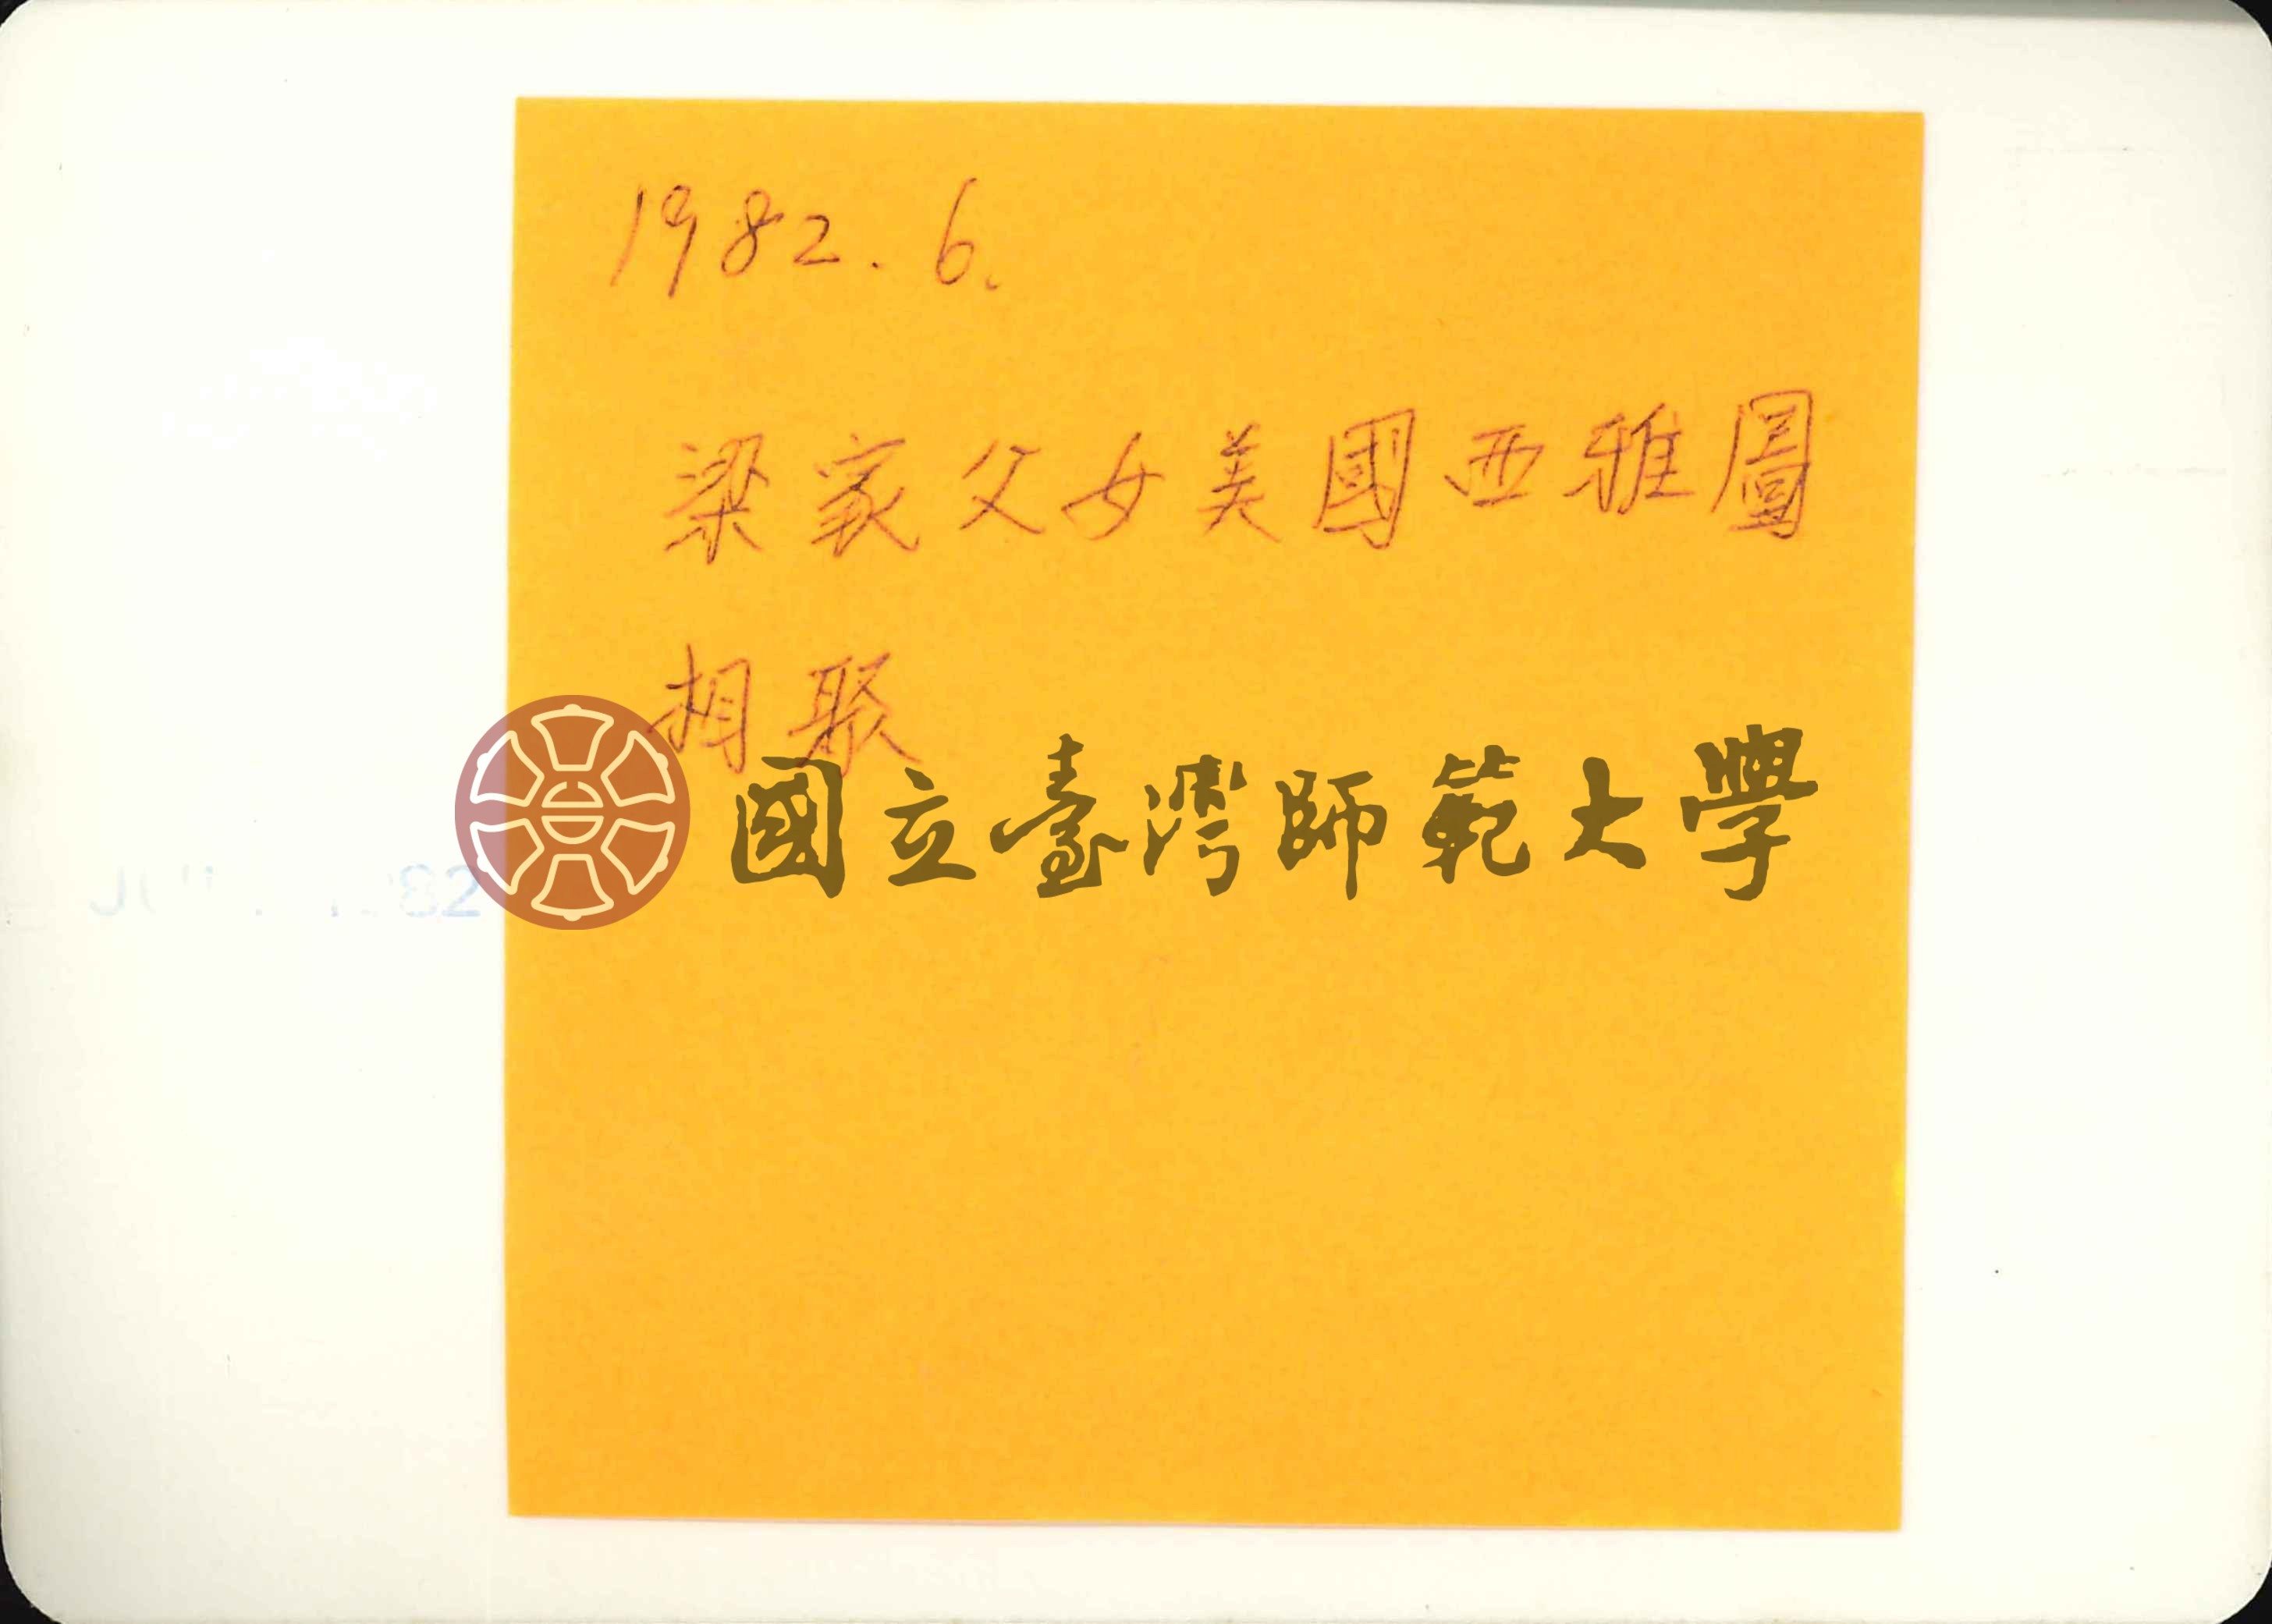 1982.6.
梁家父女美國西雅圖
相聚
國立臺灣師範大學